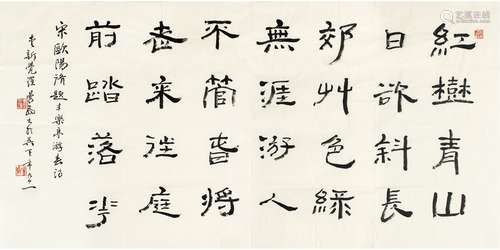 紅樹青山
日欲斜長
郊艸色綠
無涯游人
不管春將
老來往庭
前踏落花
宋歐陽脩題豐樂亭游春詩
愛新覺羅